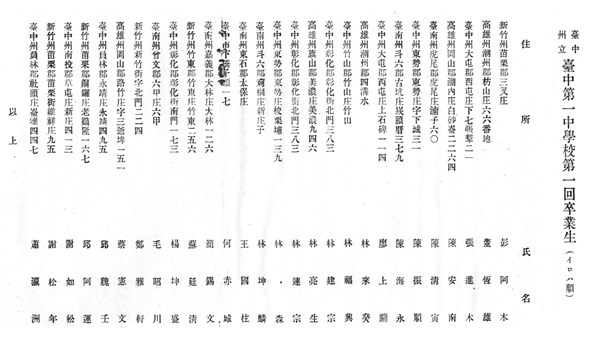 臺中州立 臺中第一中學校第一回卒業生 (イロハ順)
住所 氏名
新竹州苗栗郡三叉庄 彭阿木
高雄州潮州郡枋山庄六六番地 董恆雄
臺中州大屯郡西屯庄下七張犁二一 張進木
高雄州岡山郡湖內庄白砂崙二二六四 陳安南
臺南州虎尾郡虎尾庄浦子六〇 陳清寅
臺中州東勢郡東勢庄字下城三一 陳振順
臺南州斗六郡古坑庄崁頭厝三七九 陳海永
臺中州大屯郡西屯庄上石碑一一四 廖上
高雄州潮州郡四溝水 林來癸
新竹州竹山郡竹山庄竹山 林福興
臺中州彰化郡彰化街北門三八三 林建宗
高雄州旗山郡美濃庄美濃九四六 林亮生
臺中州彰化郡彰化街北門三八三 林蓮宗
臺中州東勢郡東勢庄校栗埔一三九 林森
臺南州斗六郡莿桐庄新庄子 林坤麟
臺南州東石郡太保庄 王國柱
臺中市 一七 何赤城
臺南州嘉義郡大林庄大林一二六 簡錫文
新竹州竹東郡竹東庄竹東二五六 蘇廷清
臺中州彰化郡彰化街南門一七三 楊坤盛
臺南州曾文郡六甲庄六甲 毛昭川
新竹州新竹街字北門二二四 鄭雅軒
高雄州岡山郡路竹庄字三爺埤一五一 蔡憲文
臺中州員林郡永靖庄永靖四九五 邱魏壬
新竹州苗栗郡銅鑼庄老雞隆一六七 邱阿運
臺中州南投郡草屯庄新庄四一三 謝如松
新竹州苗栗郡苗栗街維祥庄九五 謝松年
臺中州員林郡社頭庄崙雅四四七 蕭瀛洲
以上